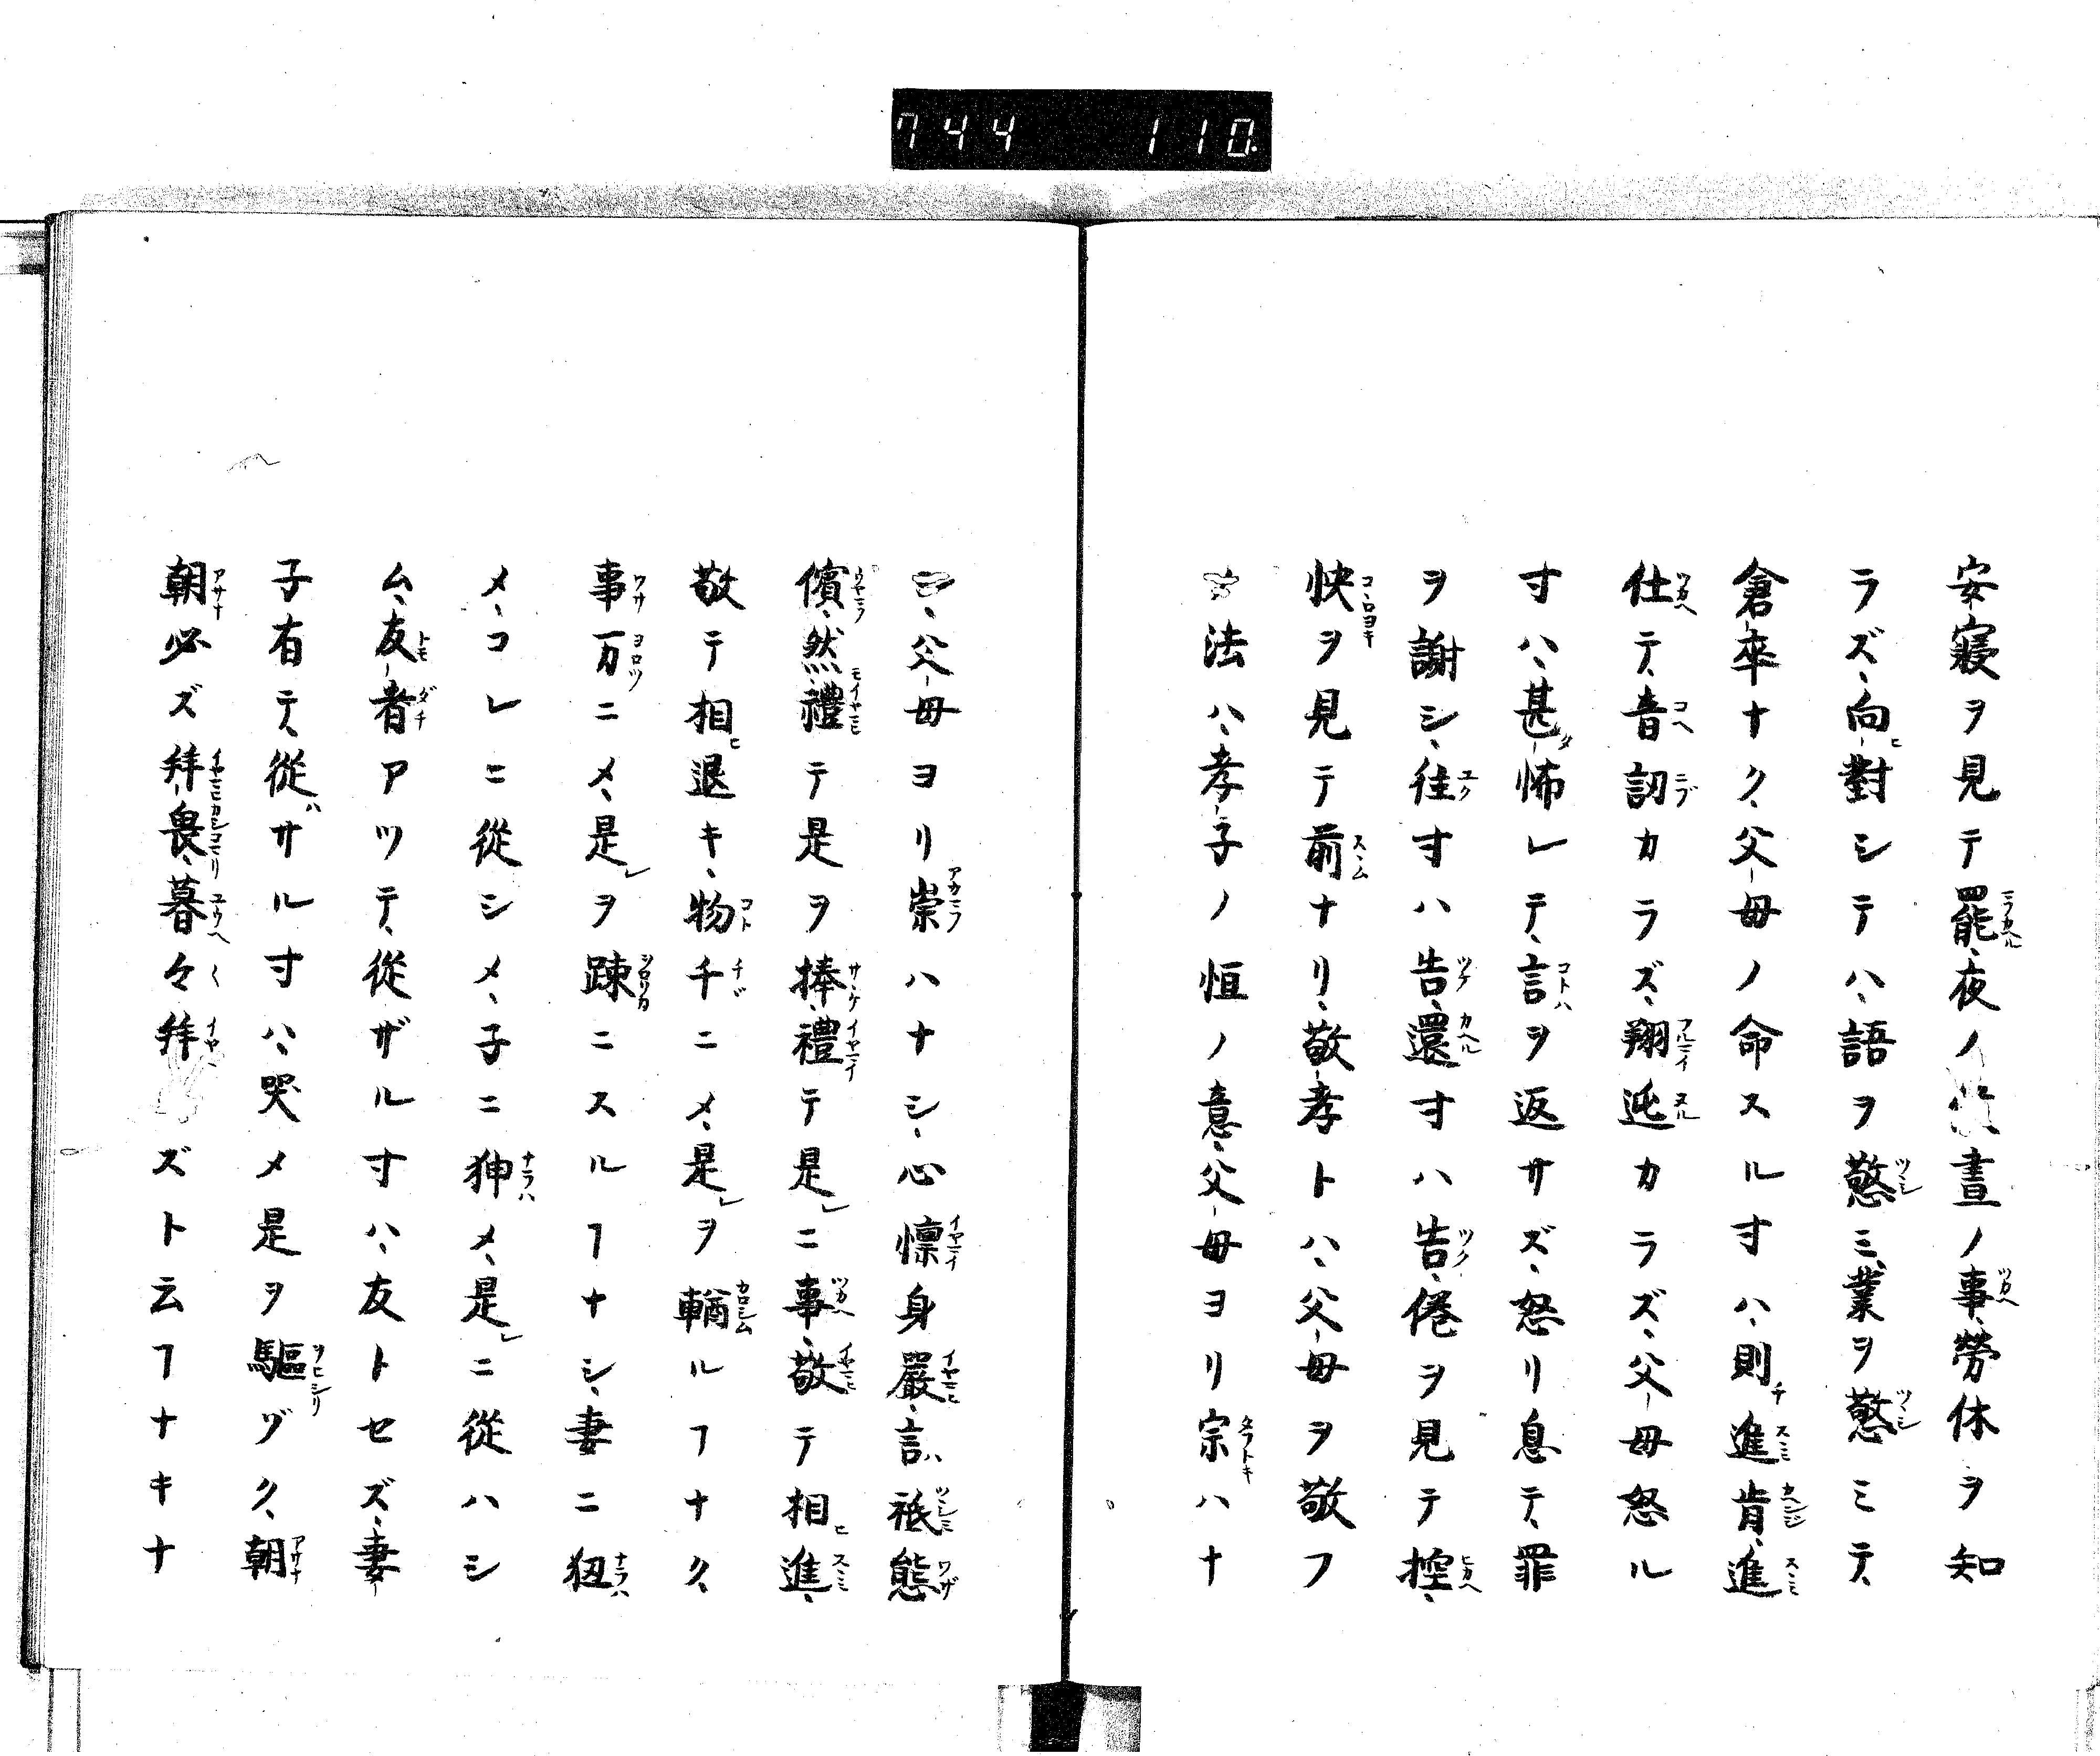 744 110
安寢ヲ見テ罷、夜ノ、晝ノ事、勞休ヲ知
ラズ、向對シテハ、語ヲ慜ミ、業ヲ慜ミテ、
倉卒ナク、父母ノ命スル寸ハ、則進肯、進
仕テ、音訒カラズ、翔迯カラズ、父母怒ル
寸ハ、甚怖レテ、言ヲ返サズ、怒リ息テ、罪
ヲ謝シ、往寸ハ告、還寸ハ告、倦ヲ見テ控、
快ヲ見テ前ナリ、敬孝トハ、父母ヲ敬フ
法ハ、孝子ノ恒ノ意、父母ヨリ宗ハナ
父母ヨリ崇ハナシ、心懍身嚴、言祗態
儐、然禮テ是ヲ捧、禮テ是ニ事、敬テ相進、
敬テ相退キ、物千ニメ、是ヲ輶ルヿナク、
事万ニメ、是ヲ踈ニスルヿナシ、妻ニ狃
メ、コレニ從シメ、子ニ狎メ、是ニ從ハシ
ム、友者アツテ、從ザル寸ハ、友トセズ、妻
子有テ、從サル寸ハ、哭メ是ヲ驅ヅク、朝
朝必ズ拜畏、暮々拜ズト云ヿナキナ